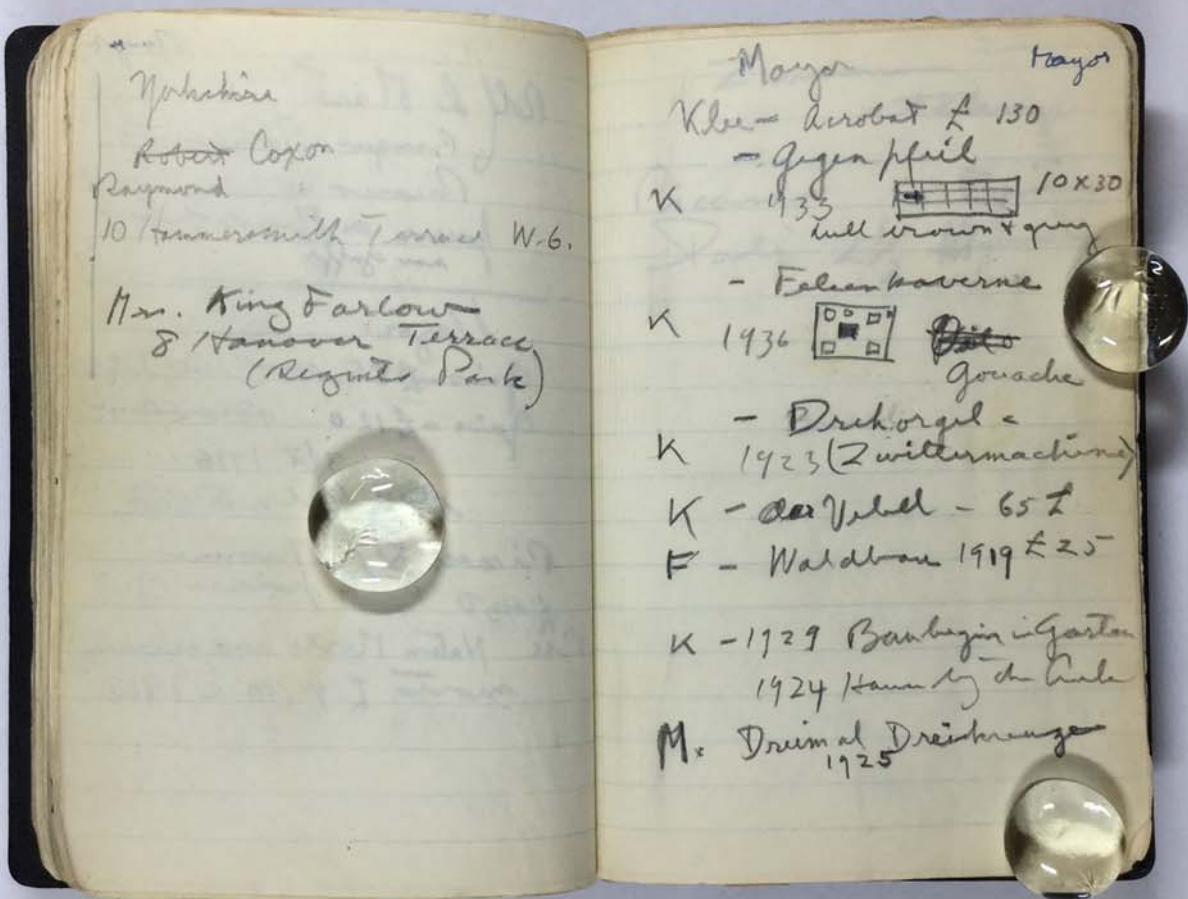 Yorkshire
Robert Coxon
Raymond
10 Hammersmith Terrace W.6.
Mrs. King Farlow
8 Hanover Terrace
(Regents Park)
Mayor
Mayor
Klee - Acrobat £ 130
- Gegen pfeil
K 1933 10 x 30
dull brown & grey
- Felsenkaverne
K 1936
Gouache
- Drehorgel
K 1923 (Zwittermachine)
K - der - 65 £
F - Waldbau 1919 £25
K - 1929 Baubegin in Garten
1924 Haun by the
M. Dreimal Dreikreuze
1925